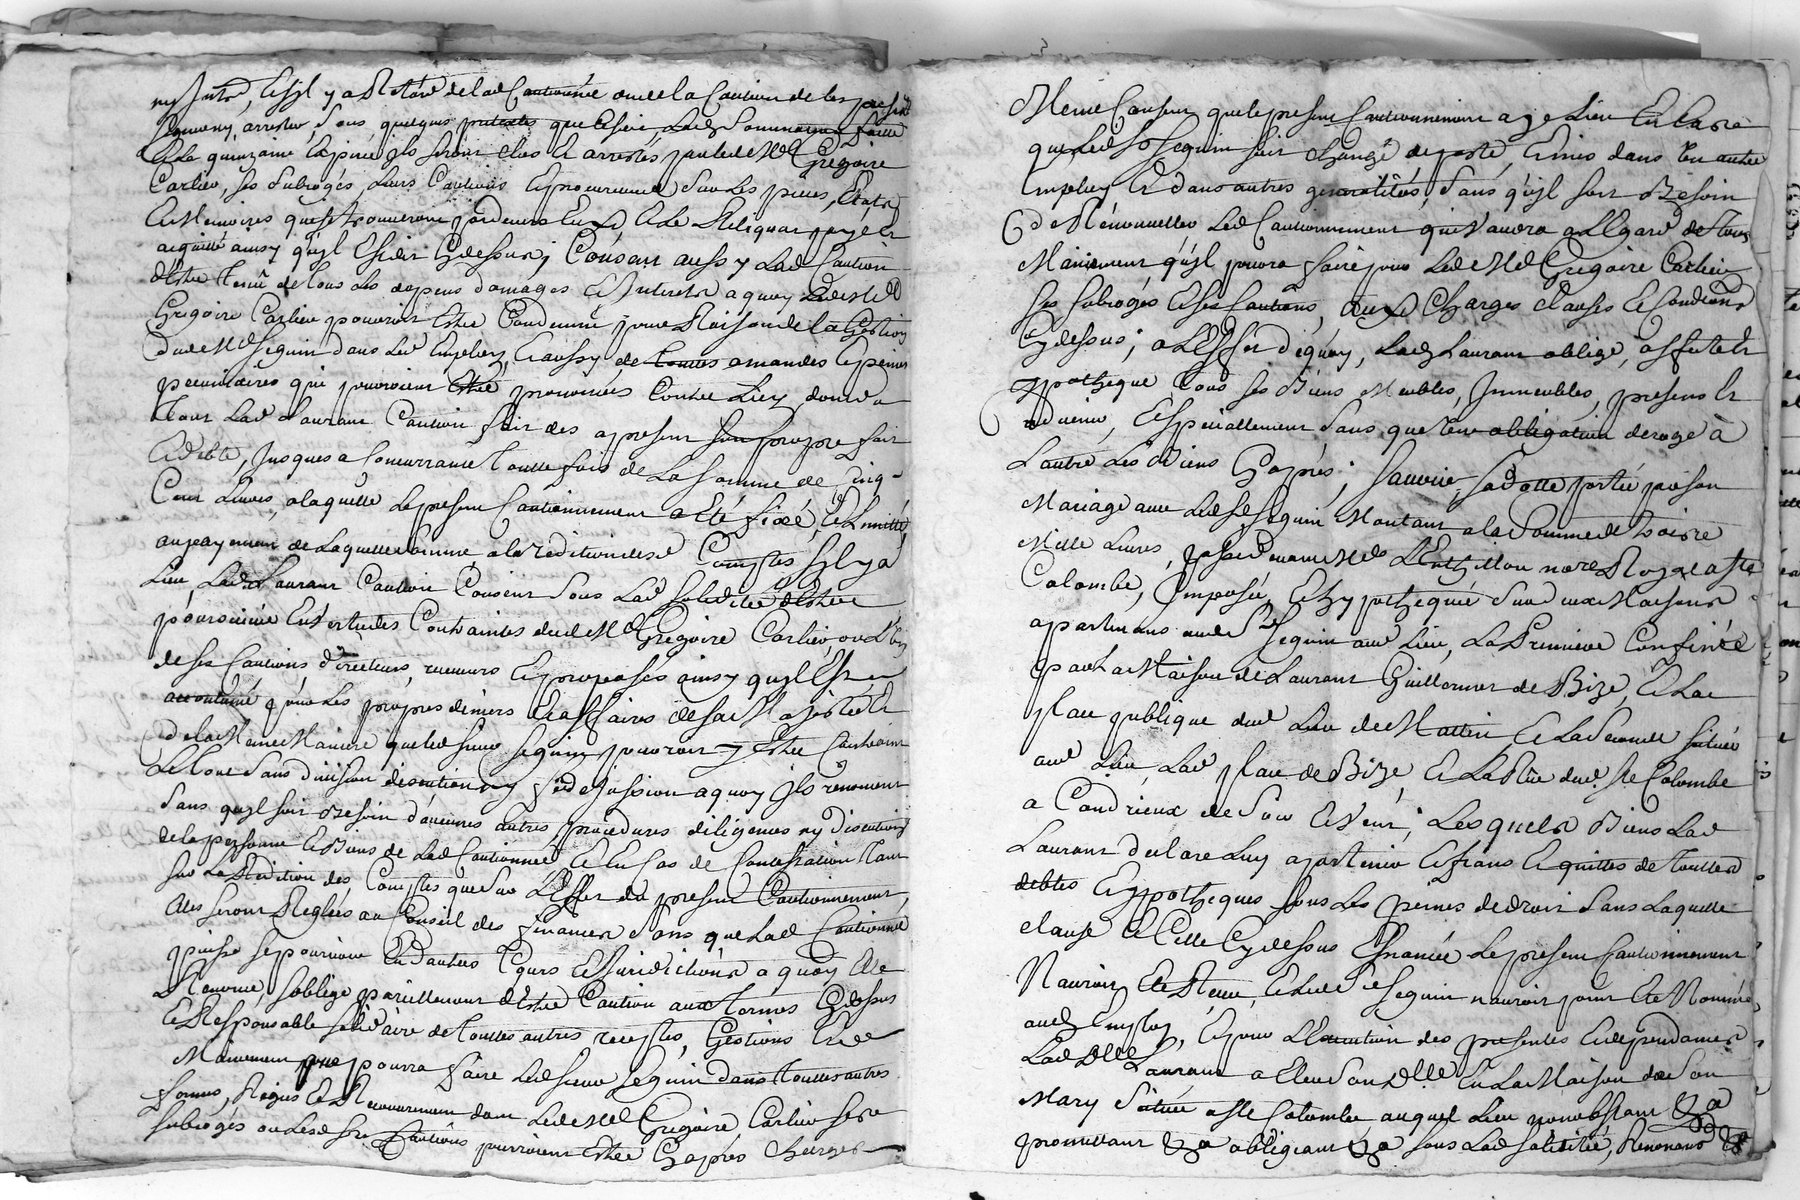 Et sil y a Retard de lad Cautionnée ou de la Caution de les
arrester, Sans quelque pretexte que Ce soit, Lad Sommation faitte
Et la quinzaine Expirée ils seront Clos Et arrestés par led Me Gregoire
Carlier, ses Subrogés, leurs Cautions Et procureurs Sur Les pieces, Etats
Et Memoires quils trouveront pardevers Eux Et le Reliquat payé Et
acquitté ainsy quil Est dit Cydessus; Consent aussy Lad Caution
destre Tenüe de tous Les depens domages Et Interets a quoy Led Me
Gregoire Carlier pouroit Estre Condemné pour Raison de la Gestion
dud Me Seguin dans Led Employ, Et aussy de toutes amandes Et peines
pecuniaires qui pouroient Estre prononcées Contre Luy, dont du
tout Lad Laurant Caution fait des apresent Son propre fait
Et debte, Jusques a Concurrance touttefois de La Somme de Cinq
Cent Livres, alaquelle Le present Cautionnement a Eté fixé, Et Limitté
au payement de Laquelle Somme a la rédition desd Comptes Sil y a
Lieu, Lad Laurant Caution Consent Sous Lad Solidité destre
poursuivie En Vertu des Contraintes dud Me Gregoire Carlier, ou dun
de ses Cautions, directeurs, receveurs Et preposés ainsy quil Est
accoutumé pour Les propres deniers Et affaires de Sa Majesté Et
de la Meme Maniere que led sieur Seguin pouroit y Estre Contraint
Le tout Sans division discution ny fidejussion a quoy Ils renoncent
Sans quil soit Besoin d'aucunes autres procedures diligences ny discutions
de la personne Et Biens de Lad Cautionnée, Et En Cas de Contestation tant
Sur La Redition des Comptes que Sur L'Effet du present Cautionnement,
Elles seront Reglées au Conseil des finances Sans que Lad Cautionnée
puisse se pourvoir En d'autres Cours Et Juridictions a quoy Elle
Renonce, Soblige pareillement d'Estre Caution aux termes Cydessus
Et Responsable Solidaire de touttes autres receptes, Gestions Et
Maniement que pourra faire Led sieur Seguin dans touttes autres
fermes, Regies Et Recouvrement dont Led Me Gregoire Carlier Ses
Subrogés ou Lesd Srs Cautions pourroient Estre Cy aprés Chargés
Meme Consent que le present Cautionnement aye Lieu En Cas
que Led Sr Seguin soit Changé de poste, Et mis dans Un autre
Employ Et dans autres generalités, Sans quil soit Besoin
de Renouveller Led Cautionnement qui Vaudra a Legard de tous
Maniement quil poura faire pour Led Me Gregoire Carlier
Ses Subrogés Et Ses Cautions, aux Charges Clauses Et Conditions
Cydessus; a L'Effet dequoy, Lad Laurant oblige, affecte Et
ypotheque tous ses Biens Meubles, Immeubles, presens Et
advenir, Et Speciallement Sans que l'une obligation deroge à
Lautre Les Biens Cy aprés; Scavoir, Sa dotte portée par son
Mariage avec Led Sr Seguin Montant a la Somme de
Mille Livres, passé devant Me nore Royal a Ste
Colombe, Imposée, Et hypothequée Sur deux Maisons
apartenans aud Sr Seguin aud Lieu, La Premiere Confinée
par La Maison de Laurant Guillermet de Bize, Et La
place publique dud Lieu de Et La Seconde Située
aud Lieu, Lad place de Bize, Et La Rüe dud Ste Colombe
a Condrieux de Soir Et Vent; Lesquels Biens Lad
Laurant declare Luy apartenir Et francs Et quittes de touttes
debtes Et ypotheques Sous Les peines de droit Sans Laquelle
clause Et Celle Cy dessus Enoncée Le present Cautionnement
Nauroit Eté Receu, Et Led Sr Seguin nauroit point Eté Nommé
aud Employ, Et pour L'Execution des presentes Et dependances
Lad Dlle Laurant a Eleu Son Dlle En La Maison de Son
Mary Scituée a Ste Colombe auquel Lieu nonobstant &a
promettant &a obligeant &a Sous Lad Solidité, Renonant &a